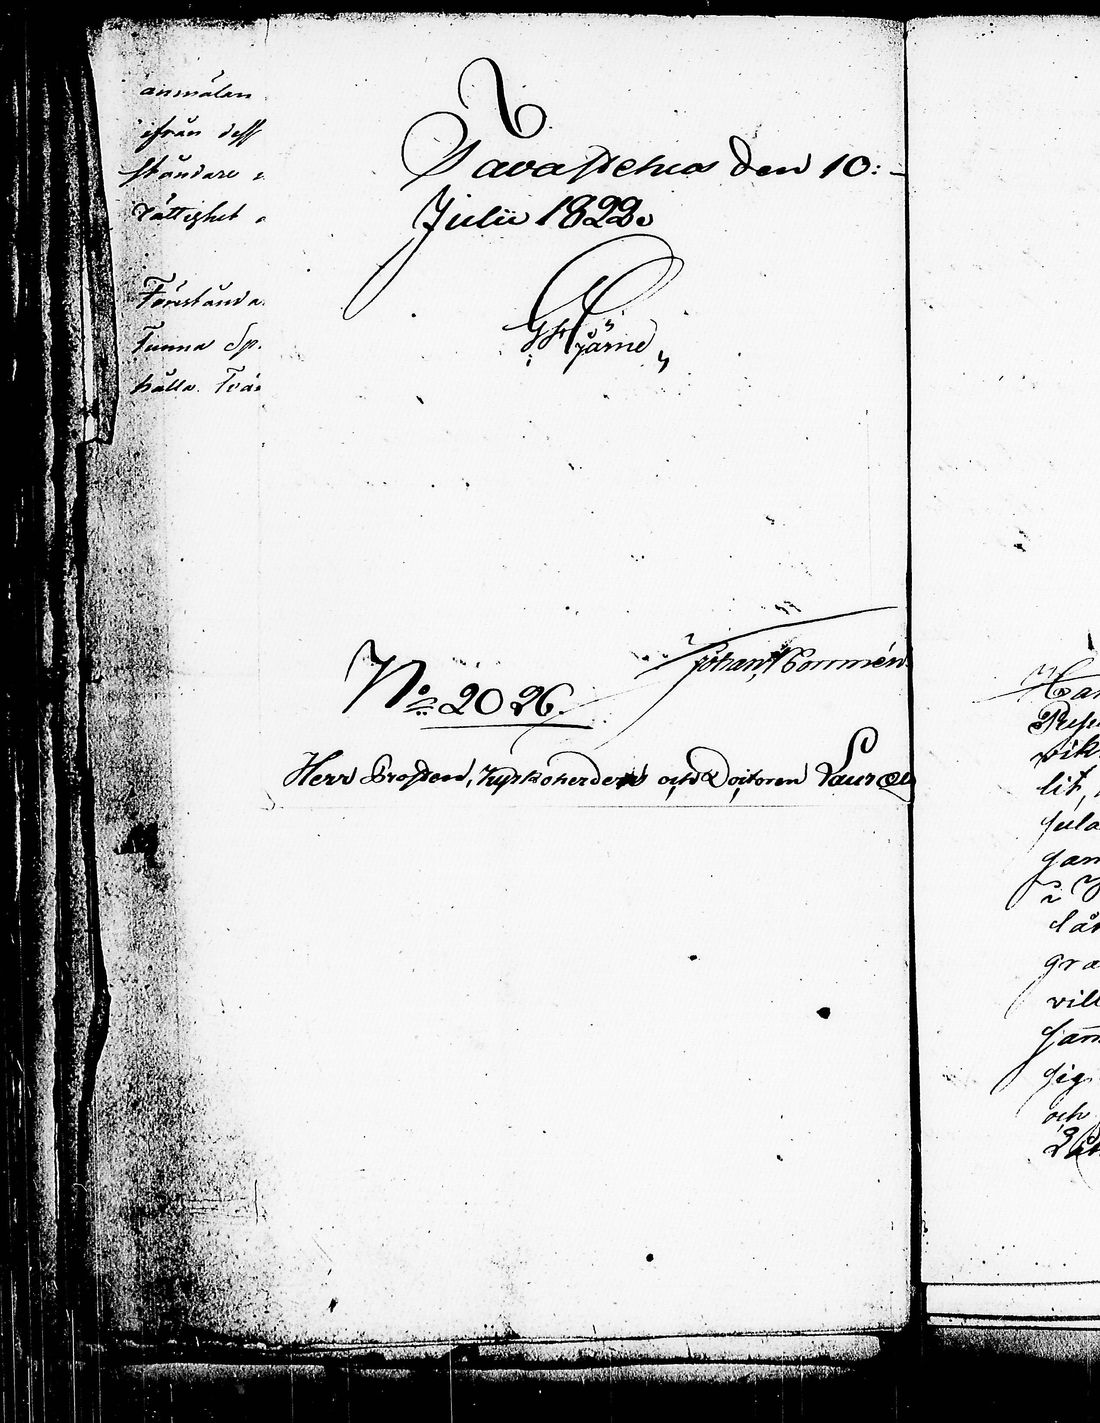 anmälan
ifrån dess
ständare
rättighet
Förestånda
Tunna Sp.
hålla. Två
Tavastehus den 10:
Julii 1822.
G. Hjärne
Johan Bonnmén
No 2026.
Herr Prosten, Kyrkoherden och Doctoren Lauræus
vik
lit,
jula
i
gra
vill
sig
och